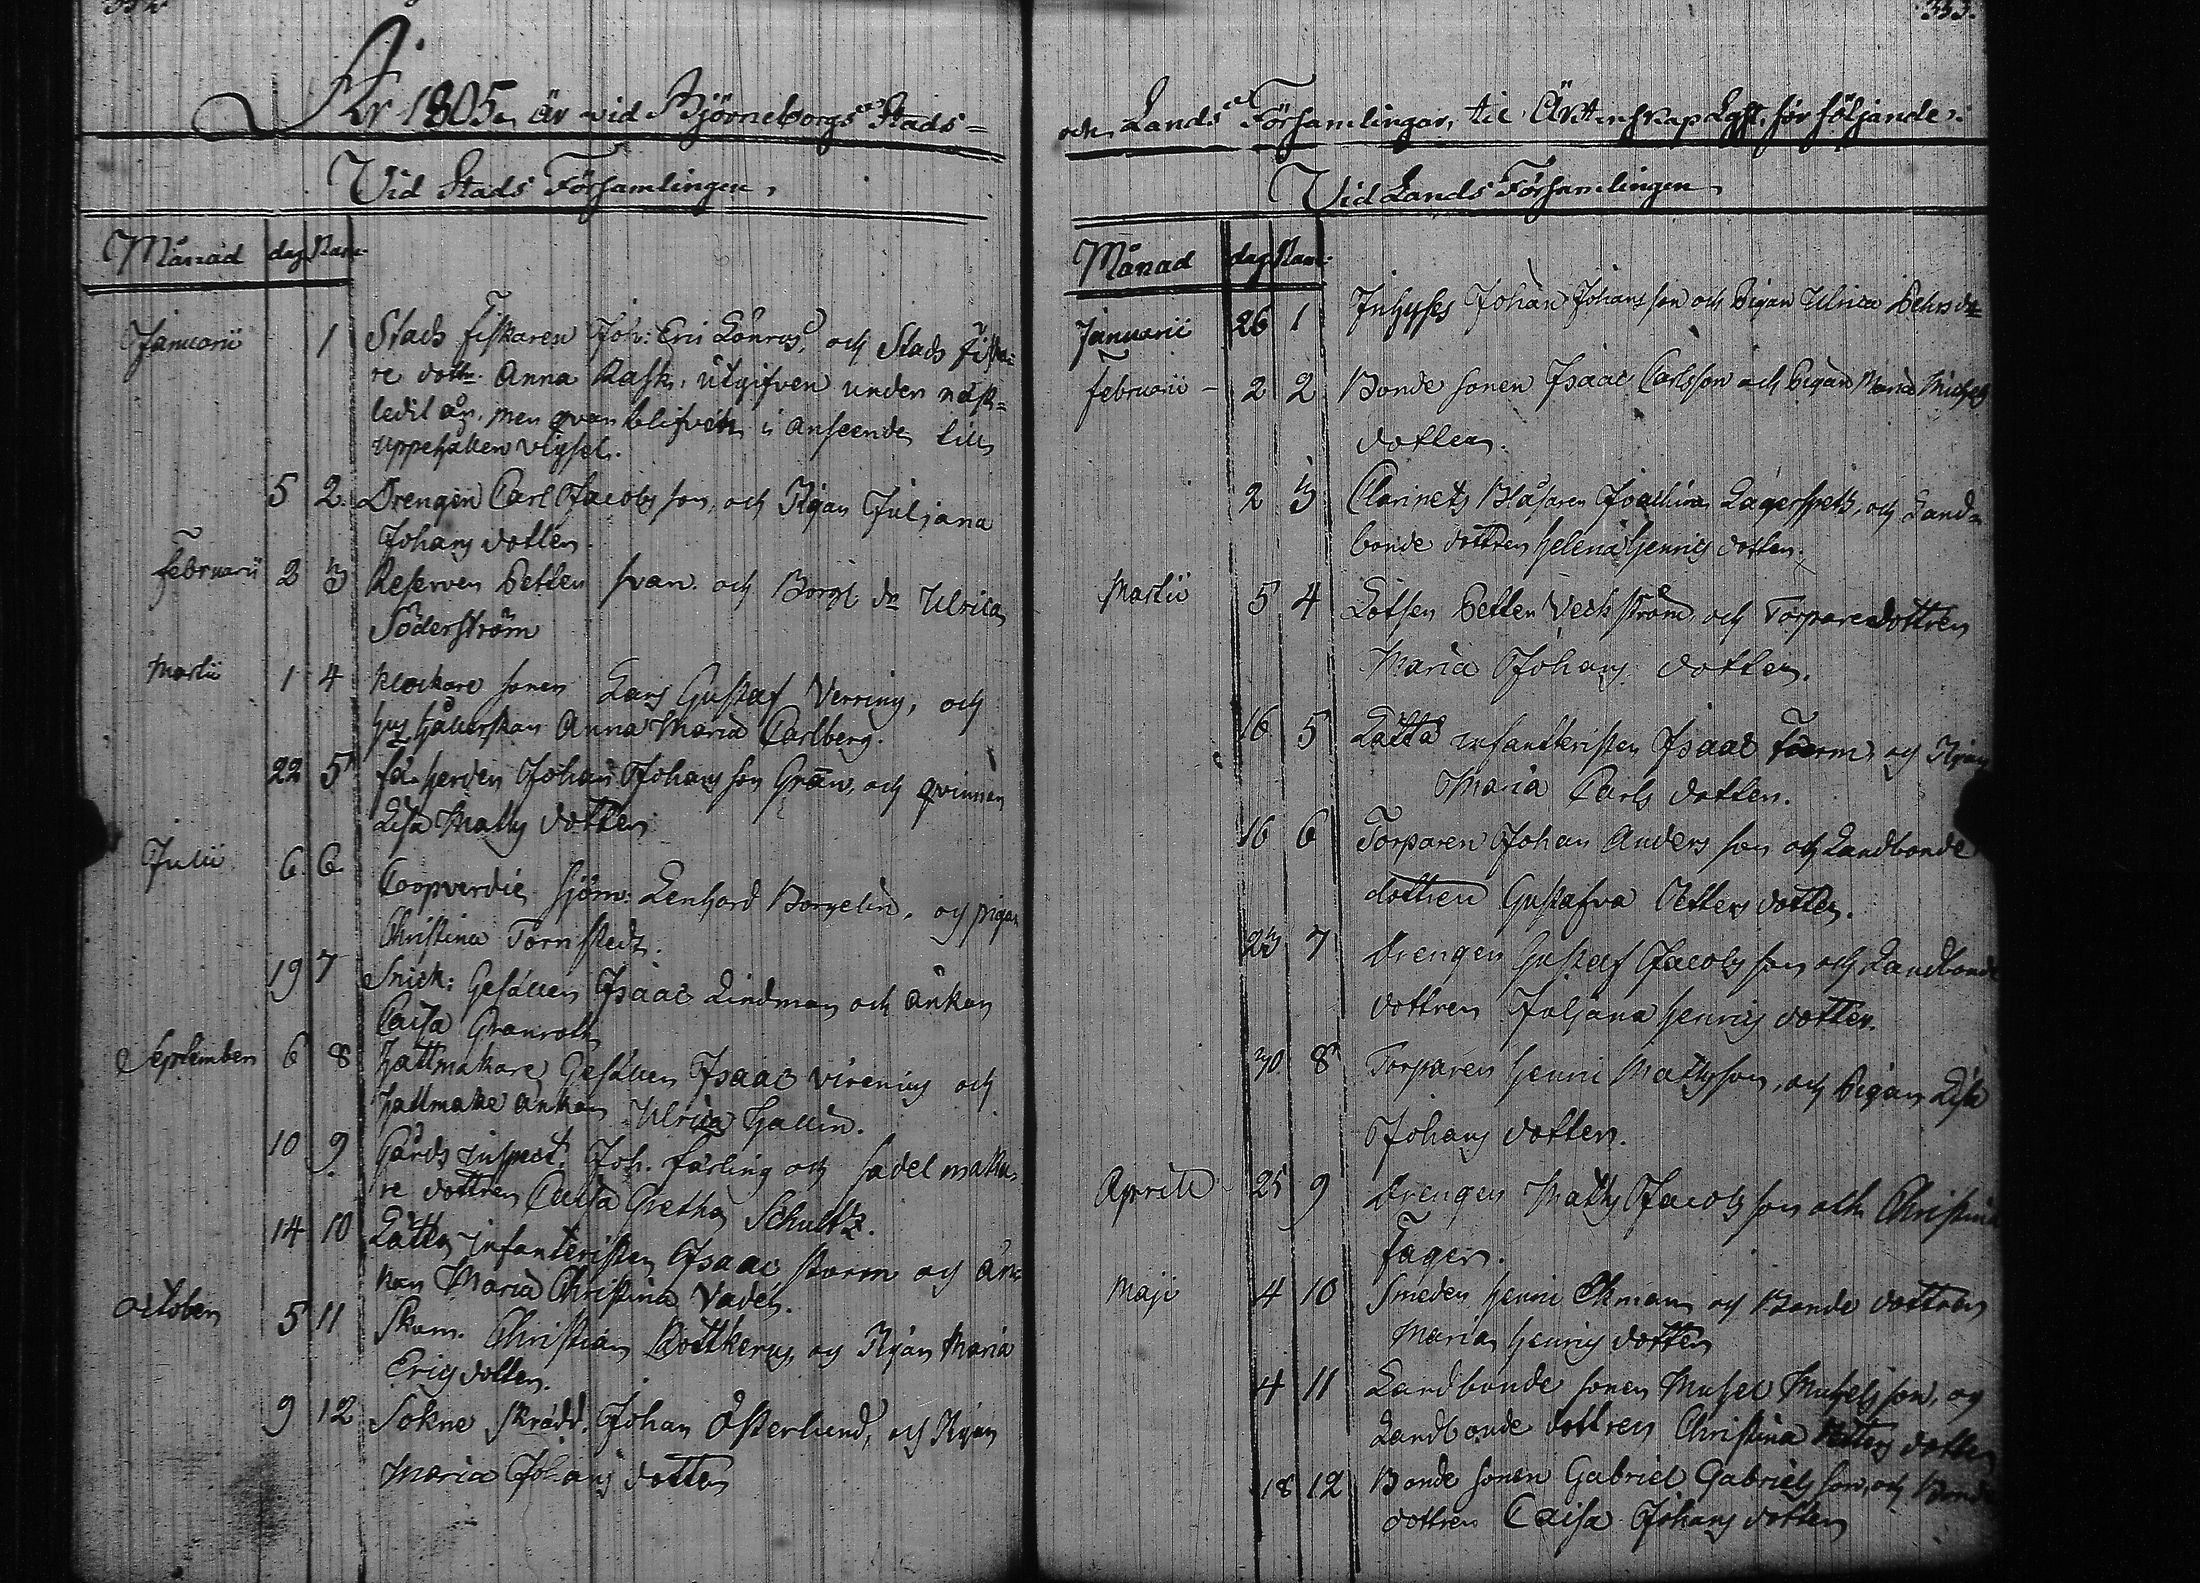 333.
År 1805 är vid Björneborgs Stads=
Vid Stads Församlingen,
Månad dag Num
Januarii 1 Stads fiskaren Joh: Eric Lönros, och Stads fiska=
re dottr. Anna Rask, utgifven under näst=
ledit år, men qvar blifven i anseende till
uppehållen vigsel.
5 2. Drengen Carl Jacobs son, och Pigan Juliana
Johans dotter
Februarii 2 3 Reserven Petter Svan och Borgl. dr Ulrica
Söderström
Martii 1 4 Klockare sonen Lars Gustaf Verring, och
hus hållerskan Anna Maria Carlberg.
22 5 få herden Johan Johans son Grän, och qvinnan
Lisa Matts dotter
Julii 6 6 Coopverdie sjöm: Lenhard Borgelin, och pigan
Christina Törnstedt.
19 7 Snick: Gesällen Isaac Lindman och änkan
Caisa Granroth
September 6 8 Hattmakare Gesällen Isaac Virenius och
Hattmake ankan Ulrica Hallin.
10 9 Gårds inspect. Joh. Färling och sadelmaka=
re dottren Caisa Gretha Schultz.
14 10 Lätta infanteristen Isaac Storm och än=
kan Maria Christina
October 5 11 Skom. Christian Rottkerus och Pigan Maria
Erics dotter.
9 12 Sokne skrädd. Johan Österlund, och Pigan
Maria Johans dotter
och Lands Församlingar, til Ächtenskap Lyst, för följande:
Vid Lands Församlingen
Månad dag Num
Januarii 26 1 Inhyses Johan Johans son och Pigan Ulrica Pehrs do=
Februarii 2 2 Bonde sonen Isaac Carlsson och Pigan Maria Michels
dotter.
2 3 Clarinets Blåsaren Joachim Lagerspets, och Land=
bonde dottren Helena Henrics dotter.
Martii 5 4 Lotsen Petter Veckström och Torpare dottren
Maria Johans dotter.
16 5 Lätta infanteristen Isaac och Pigan
Maria Carls dotter.
16 6 Torparen Johan Anders son och Landbonde
dottren Gustafva Petters dotter.
23 7 Drengen Gustaf Jacobs son och Landbonde
dottren Juliana Henrics dotter.
30 8 Torparen Henric Matts son, och Pigan Lisa
Johans dotter.
Aprill 25 9 Drengen Matts Jacobs son och Christina
Fager.
Maji 4 10 Smeden Henric Ekman och Bonde dottren
Maria Henrics dotter
4 11 Landbonde sonen Michel Michels son, och
Landbonde dottren Christina Petters dotter
18 12 Bonde sonen Gabriel Gabriels son, och Bonde
dottren Caisa Johans dotter